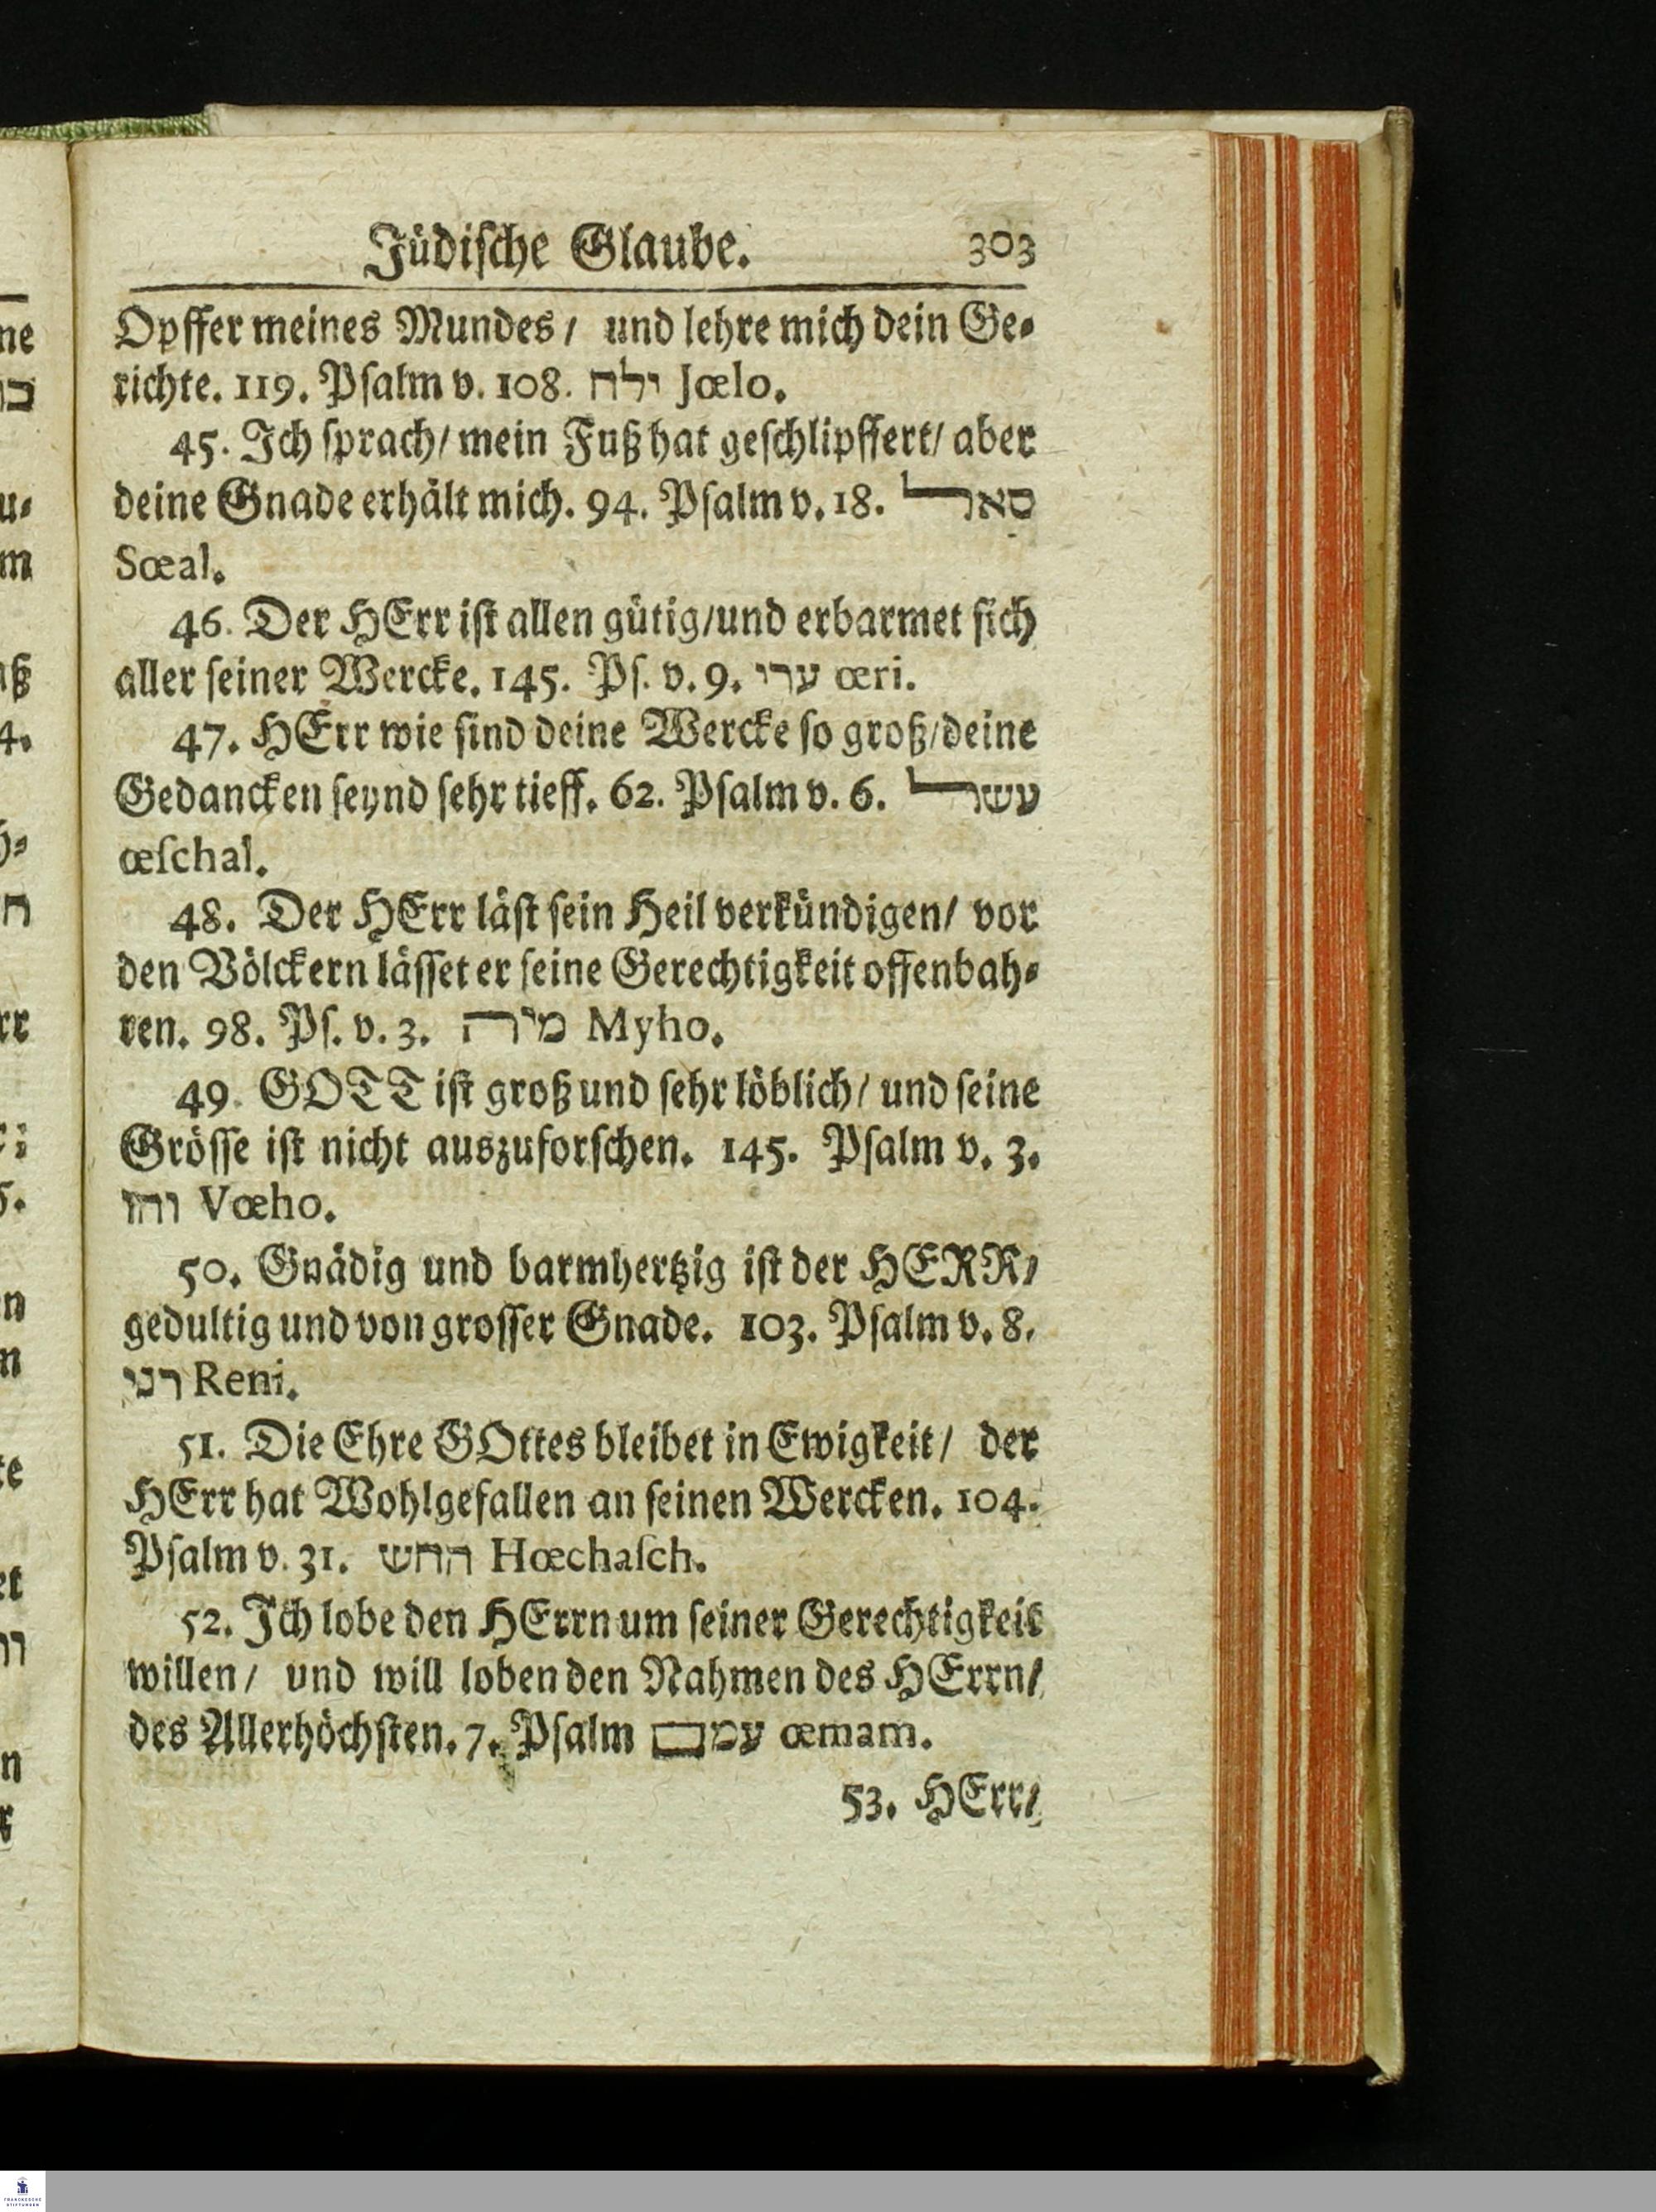 Jüdische Glaube. 303
Opffer meines Mundes / und lehre mich dein Ge-
richte. 119. Psalm v. 108. ילח Jœlo.
45. Ich sprach / mein Fuß hat geschlipffert / aber
deine Gnade erhält mich. 94. Psalm v. 18. סאל
Sœal.
46. Der HErr ist allen gütig / und erbarmet sich
aller seiner Wercke. 145. Ps. v. 9. ערי œri.
47. HErr wie sind deine Wercke so groß / deine
Gedancken seynd sehr tieff. 62. Psalm v. 6. עשל
œschal.
48. Der HErr läst sein Heil verkündigen / vor
den Völckern lässet er seine Gerechtigkeit offenbah-
ren. 98. Ps. v. 3. מיה Myho.
49. GOTT ist groß und sehr löblich / und seine
Grösse ist nicht auszuforschen. 145. Psalm v. 3.
והו Vœho.
50. Gnädig und barmhertzig ist der HERR /
gedultig und von grosser Gnade. 103. Psalm v. 8.
רני Reni.
51. Die Ehre GOttes bleibet in Ewigkeit / der
HErr hat Wohlgefallen an seinen Wercken. 104.
Psalm v. 31. החש Hœchasch.
52. Ich lobe den HErrn um seiner Gerechtigkeit
willen / und will loben den Nahmen des HErrn /
des Allerhöchsten. 7. Psalm עמם œmam.
53. HErr /